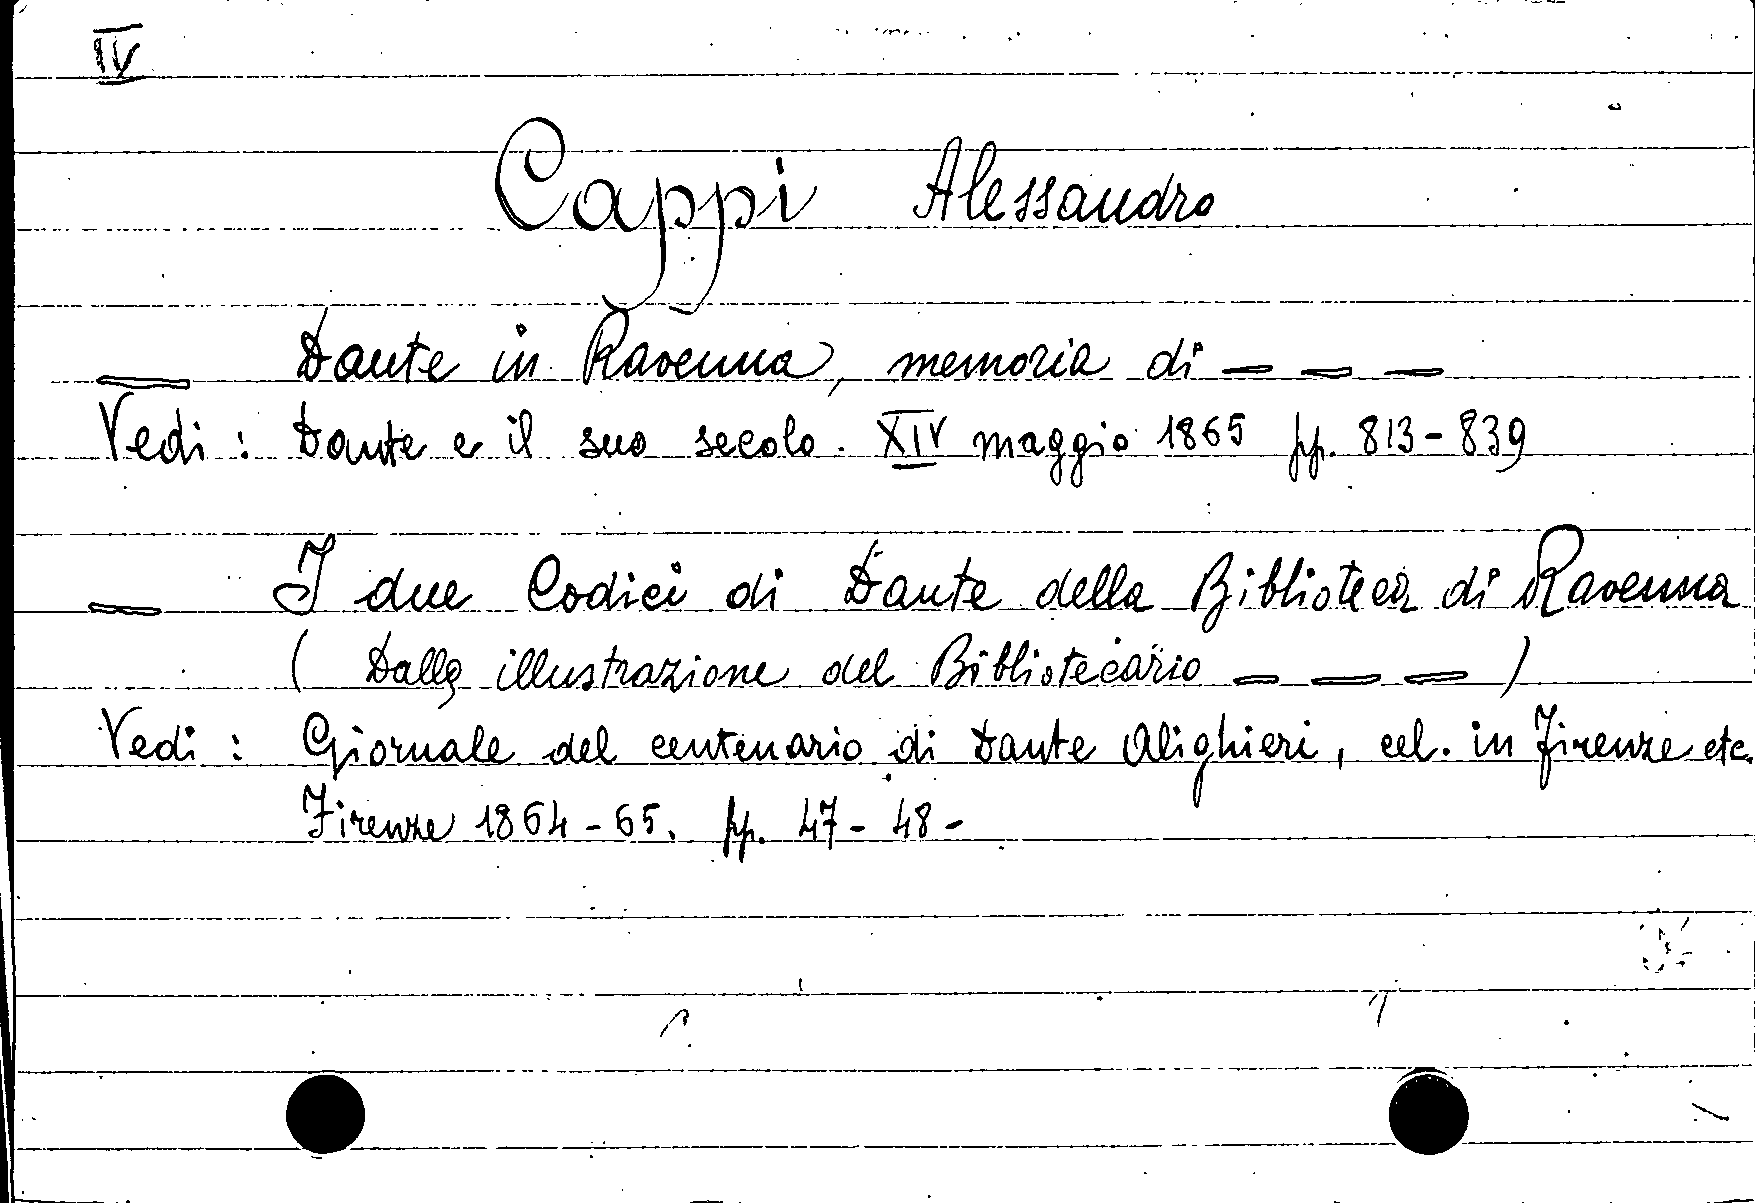 IV
Cappi Alessandro
— Dante in Ravenna, memoria di — — —
Vedi : Dante e il suo secolo. XIV maggio 1865 pp. 813-839
— I due Codici di Dante della Biblioteca di Ravenna
( Dalla illustrazione del Bibliotecario — — — )
Vedi : Giornale del centenario di Dante Alighieri, cel. in Firenze etc.
Firenze 1864-65. pp. 47-48-